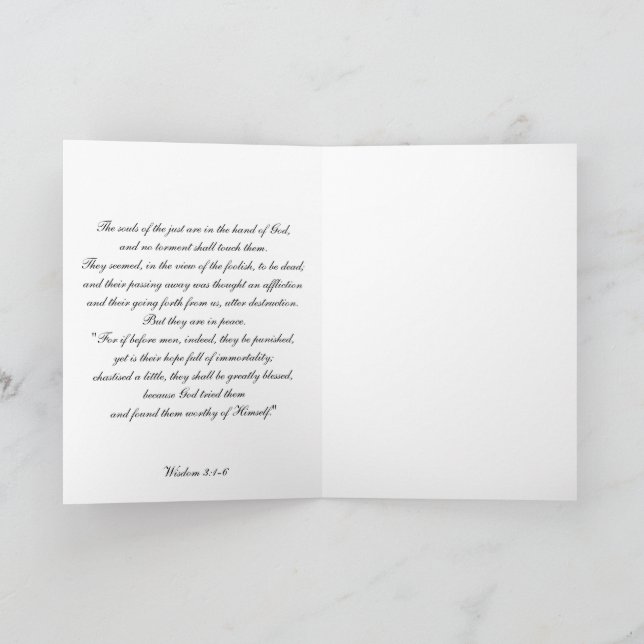 The souls of the just are in the hand of God,
and no torment shall touch them.
They seemed, in the view of the foolish, to be dead;
and their passing away was thought an affliction
and their going forth from us, utter destruction.
But they are in peace.
"For if before men, indeed, they be punished,
yet is their hope full of immortality;
chastised a little, they shall be greatly blessed,
because God tried them
and found them worthy of Himself."
Wisdom 3:1-6